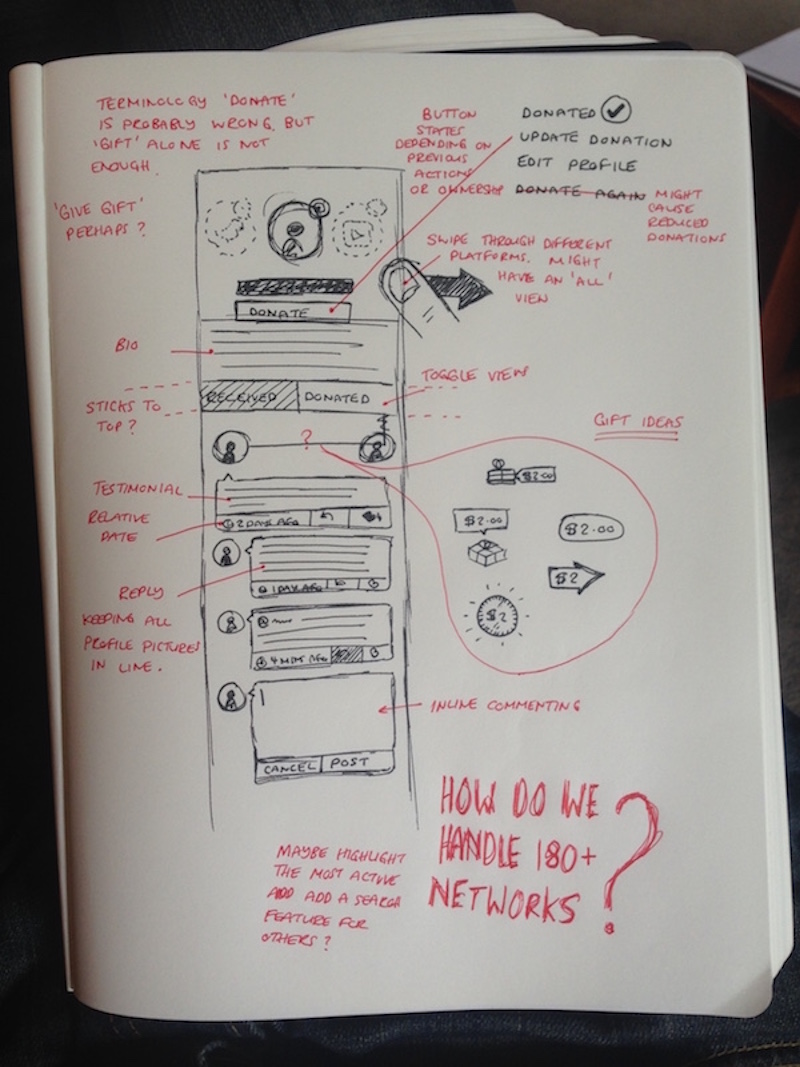 TERMINOLOGY 'DONATE'
IS PROBABLY WRONG, BUT
'GIFT' ALONE IS NOT
ENOUGH.
'GIVE GIFT'
PERHAPS?
BUTTON
STATES
DEPENDING ON
PREVIOUS
ACTIONS
OR OWNERSHIP
DONATED
UPDATE DONATION
EDIT PROFILE
DONATE AGAIN
MIGHT
CAUSE
REDUCED
DONATIONS
SWIPE THROUGH DIFFERENT
PLATFORMS. MIGHT
HAVE AN 'ALL'
VIEW
DONATE
BIO
RECEIVED
DONATED
TOGGLE VIEW
STICKS TO
TOP?
?
GIFT IDEAS
$2.00
$2.00
$2.00
$2
$2
TESTIMONIAL
RELATIVE
DATE
2 DAYS AGO
REPLY
1 DAY AGO
KEEPING ALL
PROFILE PICTURES
IN LINE.
4 MINS AGO
INLINE COMMENTING
CANCEL
POST
HOW DO WE
HANDLE 180+
NETWORKS?
MAYBE HIGHLIGHT
THE MOST ACTIVE
ADD ADD A SEARCH
FEATURE FOR
OTHERS?